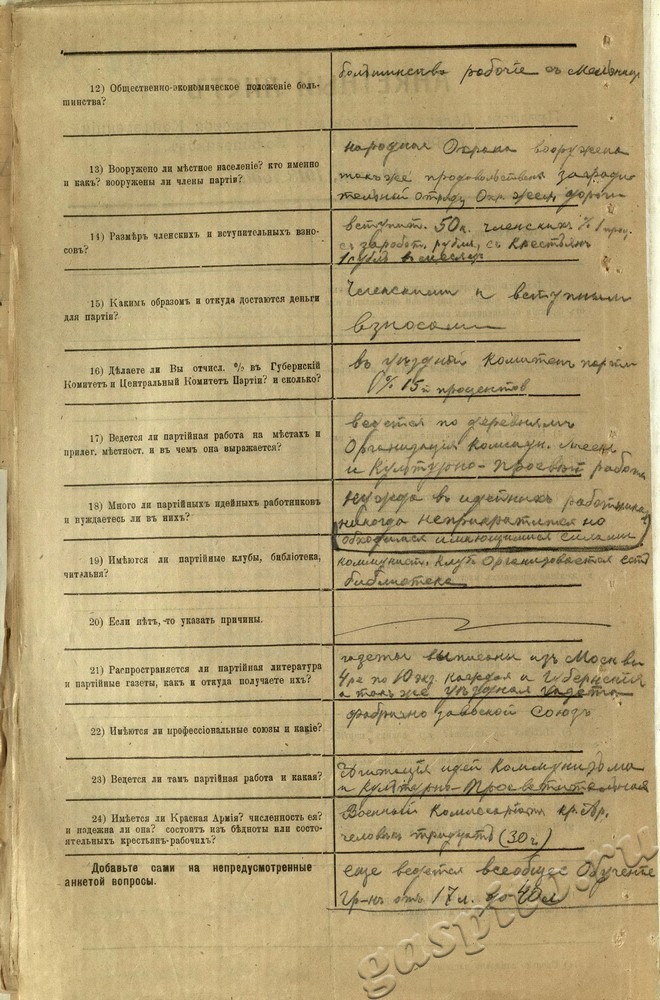 12) Общественно-экономическое положеніе боль-
шинства?
большинство рабочіе съ
13) Вооружено ли мѣстное населеніе? кто именно
и какъ? вооружены ли члены партіи?
народная Охрана вооружена
также продовольствен. заградит
тельный отряду Охр. желез. дороги
14) Размѣръ членскихъ и вступительныхъ взно-
совъ?
вступит. 50 к. членскихъ % 1 проц.
съ заработ. рубля, съ крестьян
1 рубль в месяц
15) Какимъ образомъ и откуда достаются деньги
для партіи?
Членскими и вступным
взносами
16) Дѣлаете ли Вы отчисл. % въ Губернскій
Комитетъ и Центральный Комитетъ Партіи? и сколько?
въ уѣздный Комитетъ партіи
0% 15 процентов
17) Ведется ли партійная работа на мѣстахъ и
прилег. мѣстност. и въ чемъ она выражается?
ведется по деревнямъ
Организація Коммун. ячеек
и Культурно-Просвѣт работа
18) Много ли партійныхъ идейныхъ работниковъ
и нуждаетесь ли въ нихъ?
нужда в идейныхъ работниках
никогда непрекратится но
обходимся имеющимися силами
19) Имѣются ли партійные клубы, библіотека,
читальня?
коммунист. клубъ организовается есть
библиотека
20) Если нѣтъ, то указать причины.
21) Распространяется ли партійная литература
и партійные газеты, какъ и откуда получаете ихъ?
газеты выписани изъ Москвы
4ре по 10 экз. каждая и Губернскія
а так же уѣздная газета
22) Имѣются ли профессіональные союзы и какіе?
фабрично завоской Союзъ
23) Ведется ли тамъ партійная работа и какая?
Агитація идей Коммунизма
и Культурн-Просветительная
24) Имѣется ли Красная Армія? численность ея?
и надежна ли она? состоитъ изъ бѣдноты или состо-
ятельныхъ крестьянъ-рабочихъ?
Военный Комиссариатъ кр. гвр.
человѣкъ тридцать (30 ч)
Добавьте сами на непредусмотренные
анкетой вопросы.
еще ведется всеобщее Обучение
Гр-нъ отъ 17 л. до 40 л
gaspiko.ru